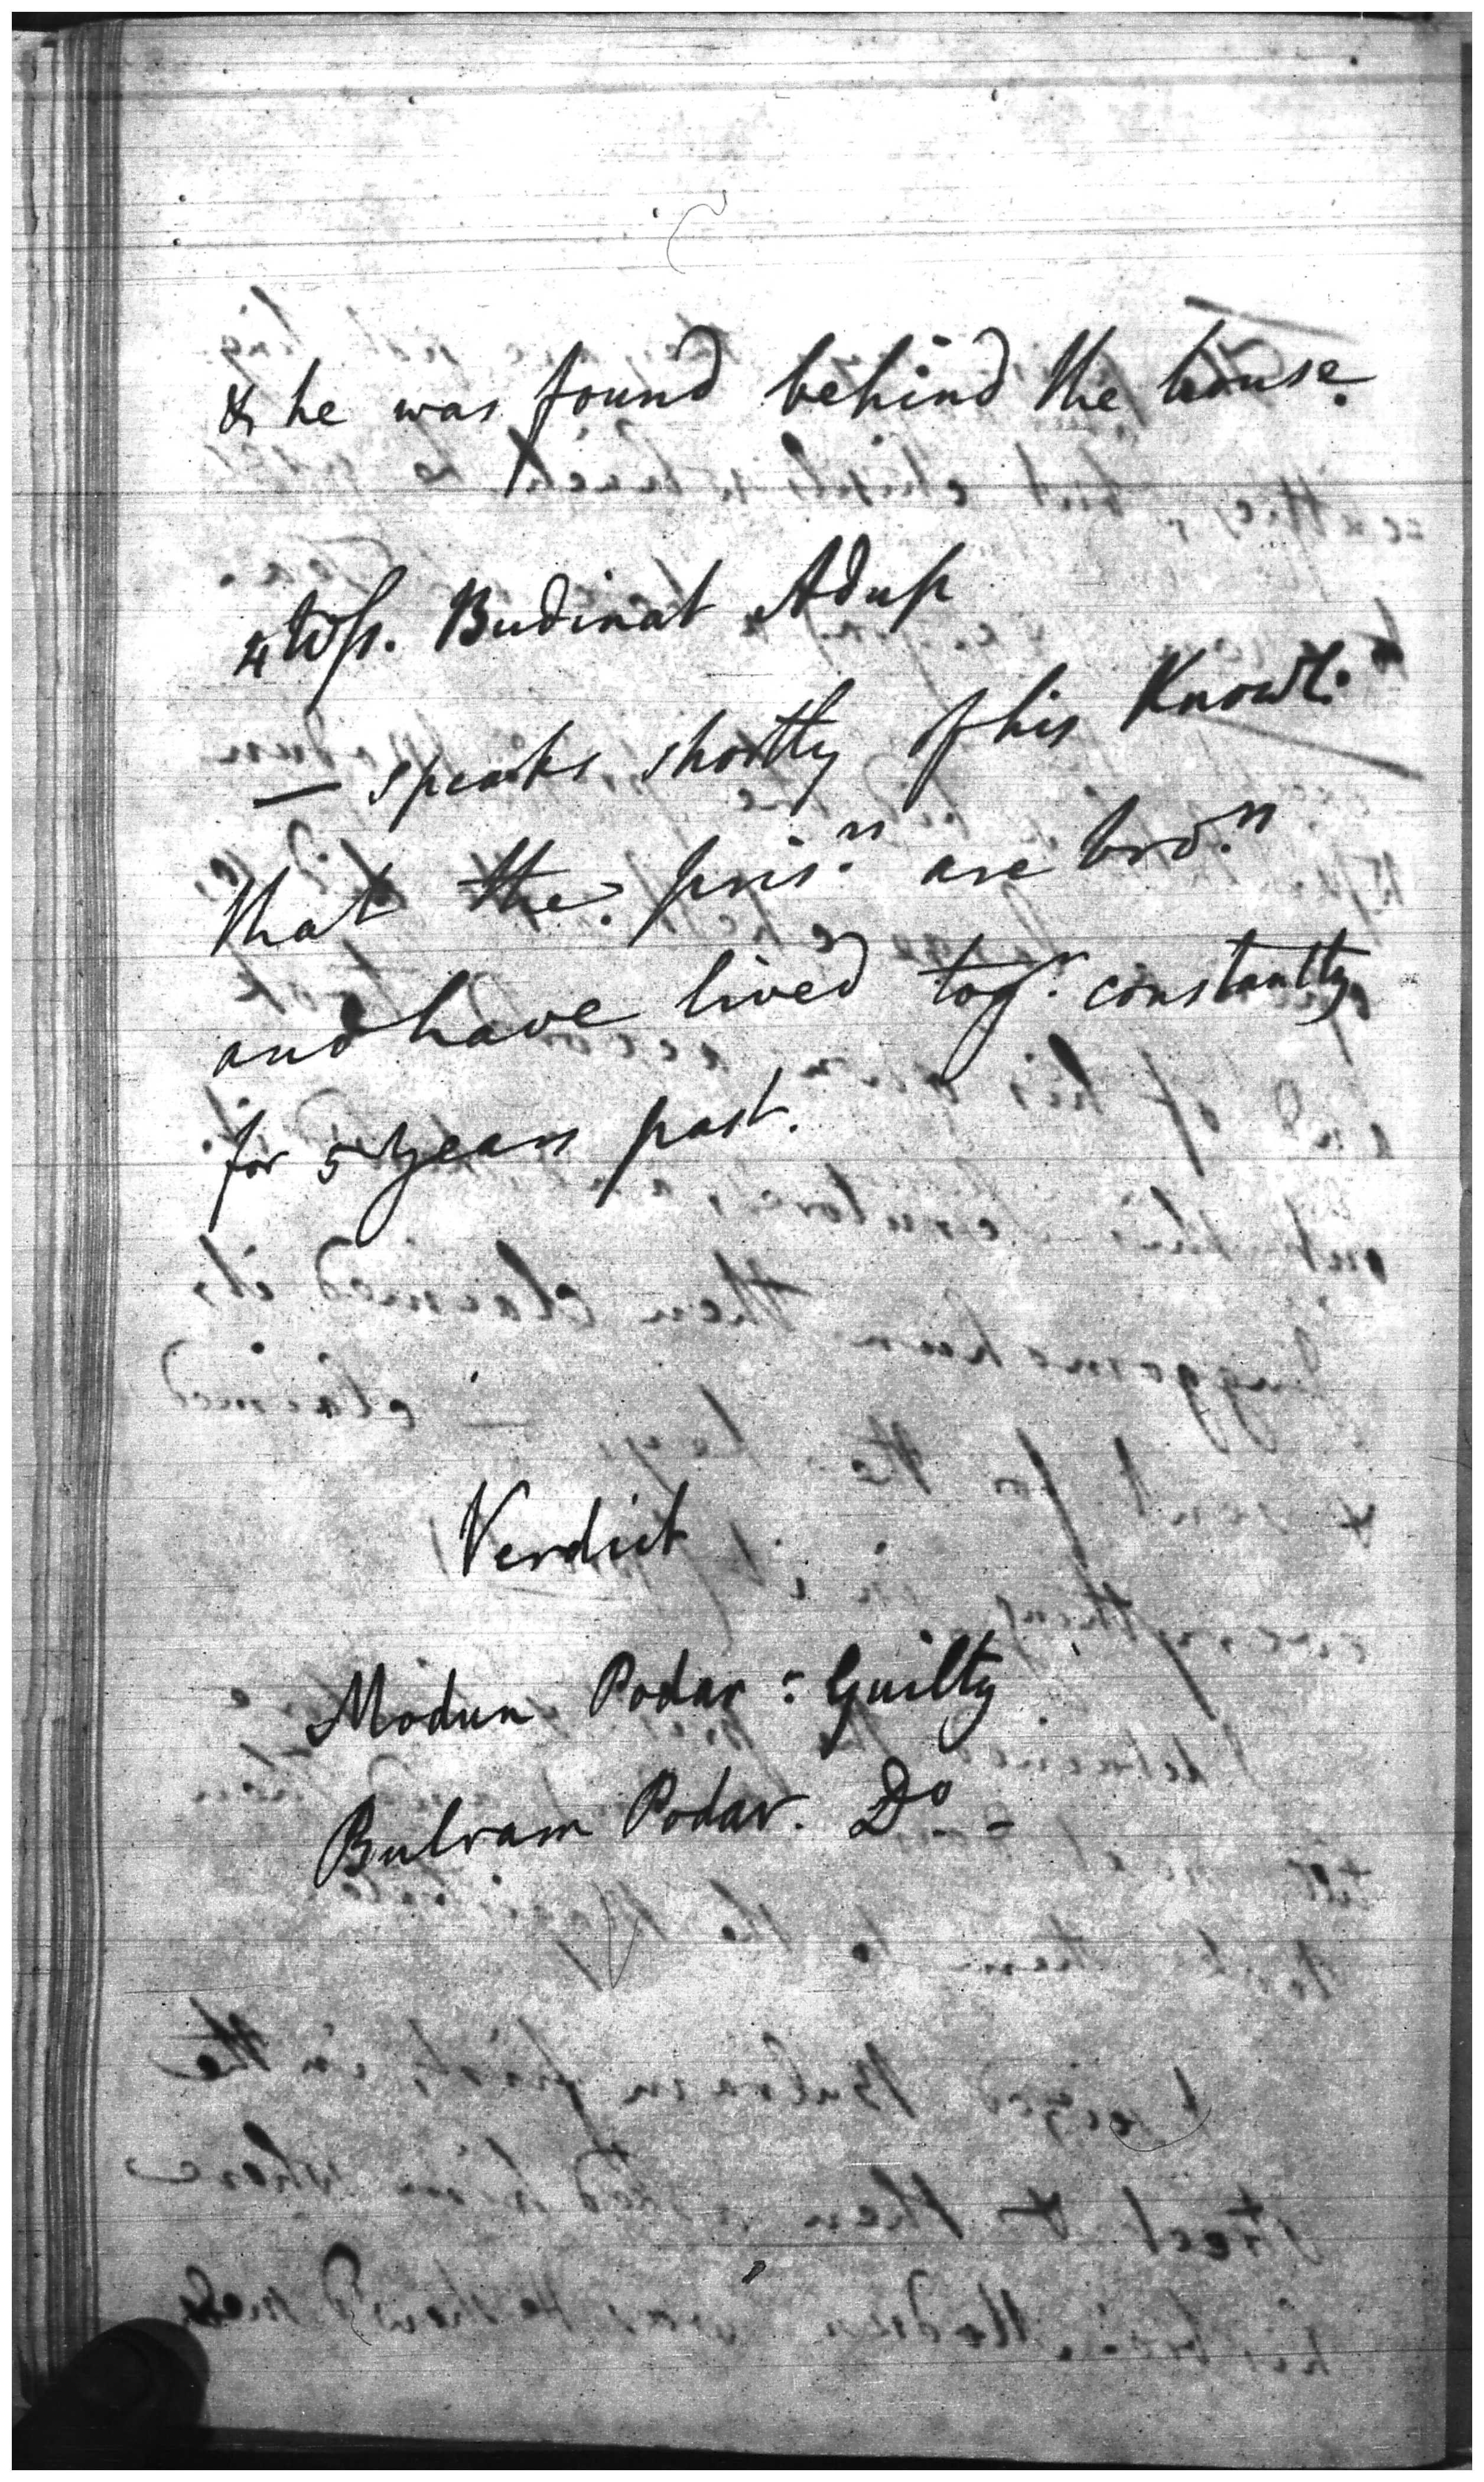 & he was found behind the house.
4 Wss. Budinat Adup
— speaks shortly of his Knowl.
that the pris.rs are bro.rs
and have lived tog.r constantly
for 5 years past.
Verdict
Modun Podar : Guilty
Bulram Podar. Do -